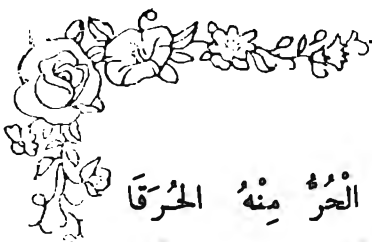 الْحُرُّ مِنْهُ الحُرَقَا